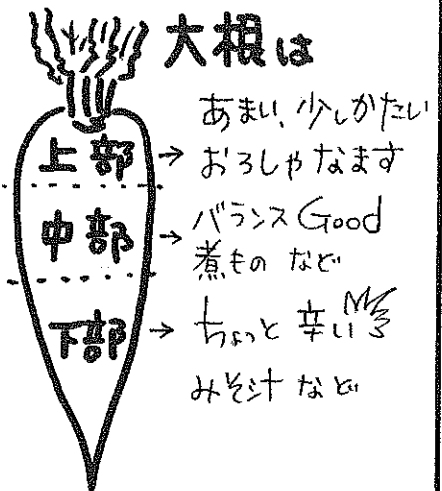 大根は
あまい、少しかたい
上部 → おろしやなます
中部 → バランスGood
煮もの など
下部 → ちょっと 辛い
みそ汁 など